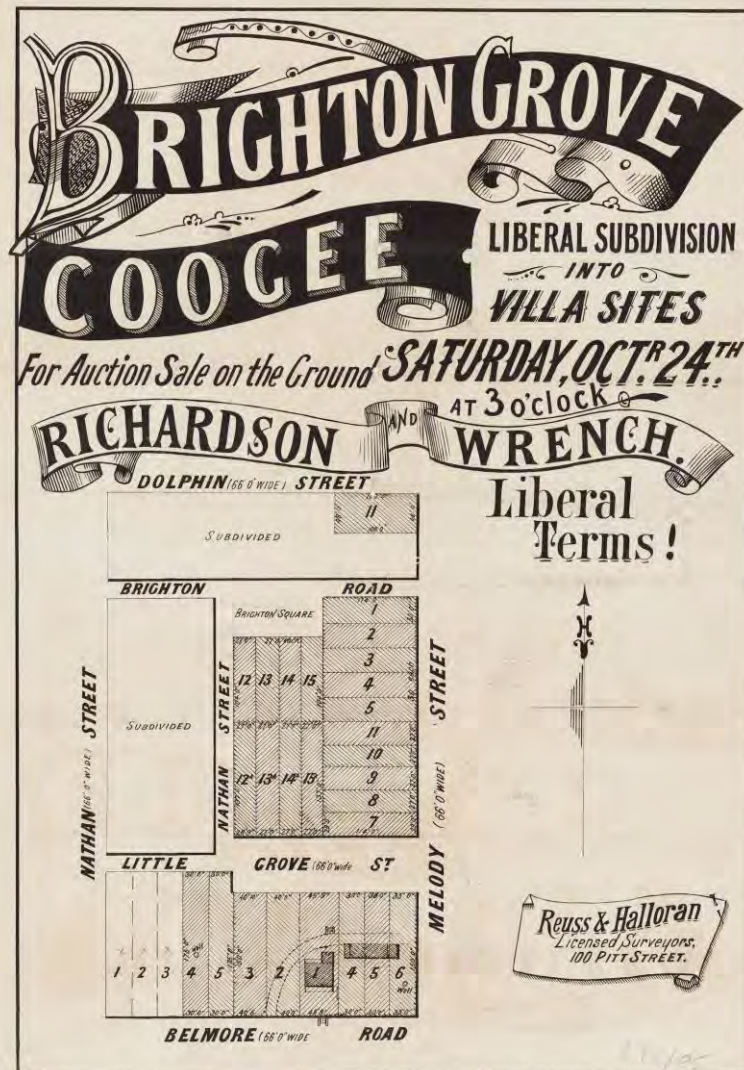 BRIGHTON GROVE
COOGEE
LIBERAL SUBDIVISION
INTO
VILLA SITES
For Auction Sale on the Ground SATURDAY, OCT.R 24.TH
AT 3 o'clock
RICHARDSON AND WRENCH.
Liberal
Terms!
DOLPHIN (66'0" WIDE) STREET
11
SUBDIVIDED
BRIGHTON ROAD
BRIGHTON SQUARE
1
2
3
4
5
11
10
9
8
7
12 13 14 15
12A 13A 14A 15
SUBDIVIDED
NATHAN (66'0" WIDE) STREET
NATHAN STREET
MELODY (66'0" WIDE) STREET
LITTLE GROVE (66'0" wide ST
1 2 3 4 5 3 2 1 4 5 6
Well
BELMORE (66'0" WIDE ROAD
N
Reuss & Halloran
Licensed Surveyors,
100 PITT STREET.